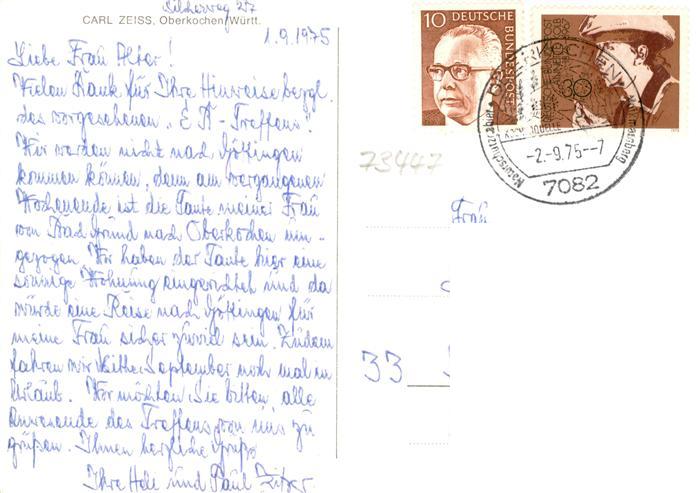 Silcherweg 27
CARL ZEISS, Oberkochen/Württ.
1.9.1975
Liebe Frau Alter!
Vielen Dank für Ihre Hinweise bezgl.
des vorgesehenen „EA-Treffens".
Wir werden nicht nach Göttingen
kommen können, denn am vergangenen
Wochenende ist die Tante meiner Frau
von Bad Grund nach Oberkochen um-
gezogen. Wir haben der Tante hier eine
sonnige Wohnung eingerichtet und da
würde eine Reise nach Göttingen für
meine Frau sicher zuviel sein. Zudem
fahren wir Mitte September noch mal in
Urlaub. Wir möchten Sie bitten alle
Anwesende des Treffens von uns zu
grüßen. Ihnen herzliche Grüße
Ihre Heli und Paul
10 DEUTSCHE
BUNDESPOST
30
OBERKOCHEN
Naturschutzgebiet
Volkmarsberg
-2.-9.75--7
7082
73447
Frau
33